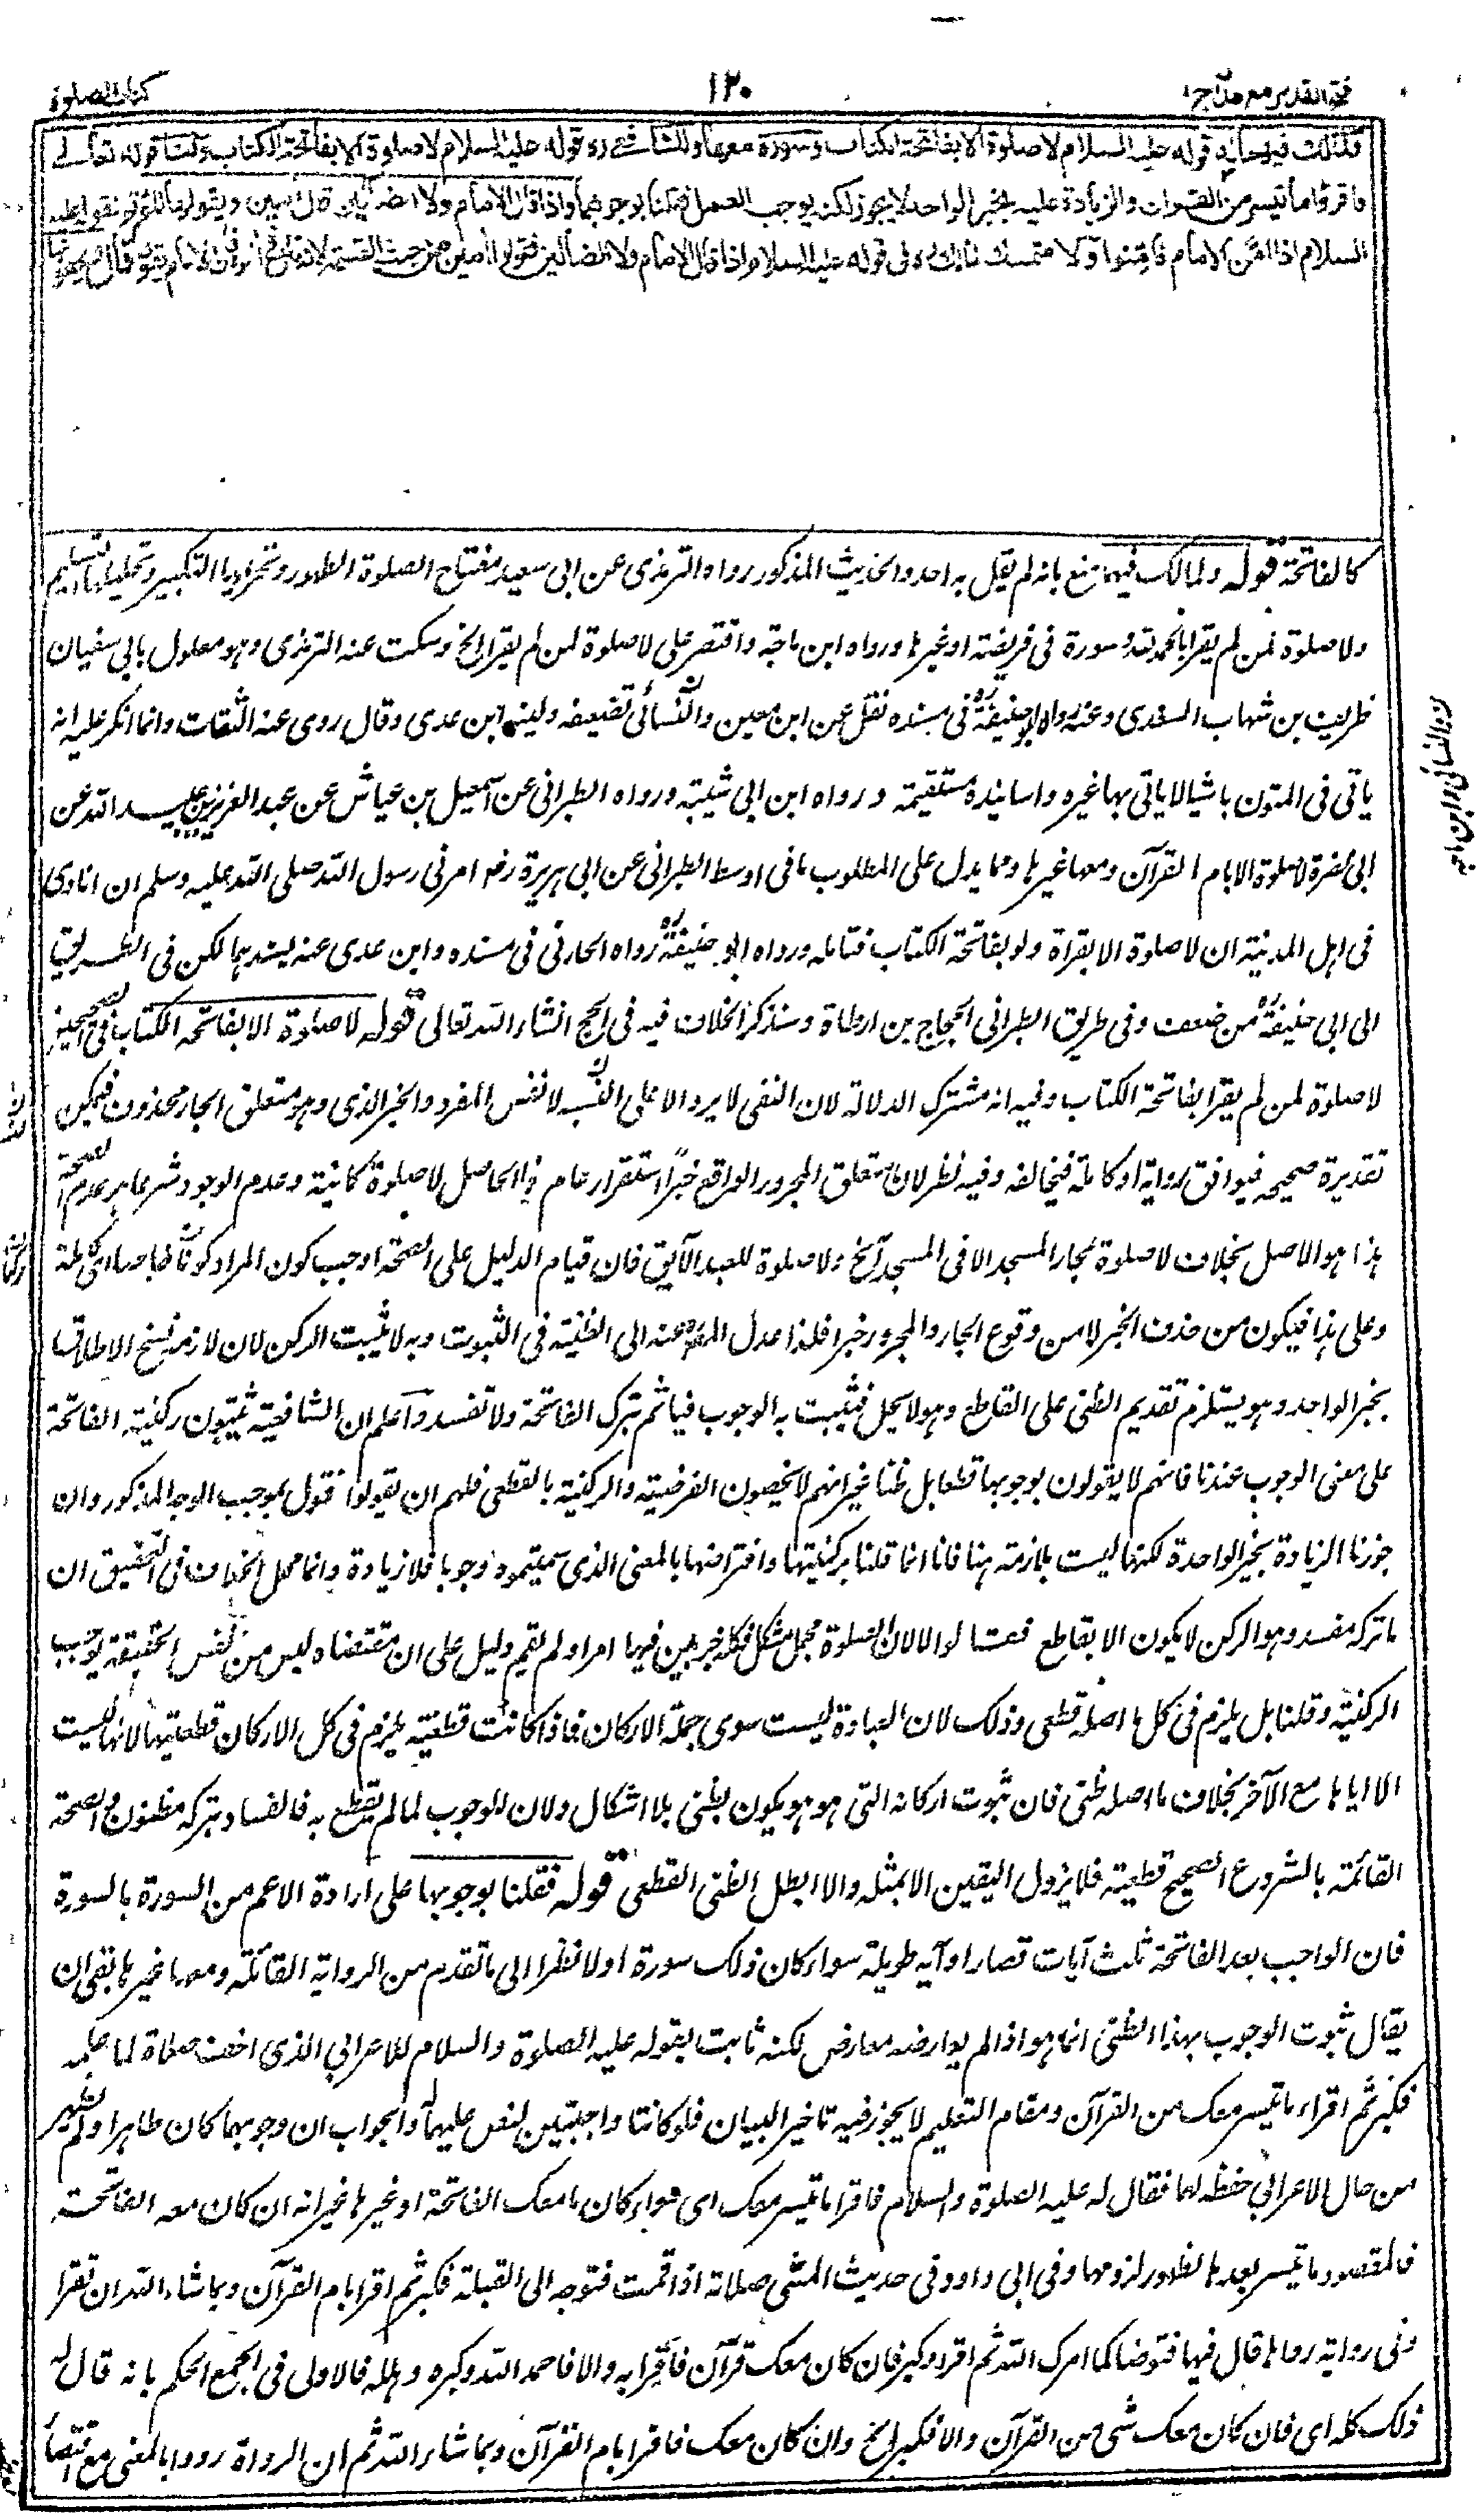 فتح القدير مع هداية ج ١
١٢٠
كتاب الصلوة
ولمالك فيهما قوله عليه السلام لا صلوة الا بفاتحة الكتاب وسورة معها وللشافعي ره قوله عليه السلام لا صلوة الا بفاتحة الكتاب ولنا قوله تعالى
فاقرؤا ما تيسر من القران والزيادة عليه بخبر الواحد لا يجوز لكنه يوجب العمل فقلنا بوجوبهما واذا قال الامام ولا الضالين قال امين ويقولها المؤتم لقوله عليه
السلام اذا امن الامام فامنوا ولا متمسك لمالك ره في قوله عليه السلام اذا قال الامام ولا الضالين فقولوا امين من حيث القسمة لانه قال في اخره فان الامام يقولها قال
كالفاتحة قوله ولمالك فيهما منع بانه لم يقل به احد والحديث المذكور رواه الترمذى عن ابى سعيد مفتاح الصلوة الطهور وتحريمها التكبير وتحليلها التسليم
ولا صلوة لمن لم يقرا بالحمد لله وسورة فى فريضة او غيرها ورواه ابن ماجة واقتصر على لا صلوة لمن لم يقرا الخ وسكت عنه الترمذى وهو معلول بابى سفيان
طريف بن شهاب السعدى وعنه رواه ابو حنيفة ره فى مسنده نقل عن ابن معين والنسائى تضعيفه ولينه ابن عدى وقال روى عنه الثقات وانما انكر عليه انه
ياتى فى المتون باشيا لا ياتى بها غيره واسانيده مستقيمة ورواه ابن ابى شيبة ورواه الطبرانى عن اسمعيل بن عياش عن عبد العزيز بن عبيد الله عن
ابى نضرة لا صلوة الا بام القرآن ومعها غيرها ومما يدل على المطلوب ما فى اوسط الطبرانى عن ابى هريرة رض امرنى رسول الله صلى الله عليه وسلم ان انادى
فى اهل المدينة ان لا صلوة الا بقراة ولو بفاتحة الكتاب فتامله ورواه ابو حنيفة ره رواه الحارثى فى مسنده وابن عدى عنه بسنديهما لكن فى الطريق
الى ابى حنيفة ره من ضعف وفى طريق الطبرانى الحجاج بن ارطاة وسنذكر الخلاف فيه فى الحج انشاء الله تعالى قوله لا صلوة الا بفاتحة الكتاب فى الصحيحين
لا صلوة لمن لم يقرا بفاتحة الكتاب وفيه انه مشترك الدلالة لان النفى لا يرد الا على النسب لا نفس المفرد والخبر الذى هو متعلق الجار محذوف فيمكن
تقديره صحيحة فيوافق رواية او كاملة فيخالفه وفيه نظر لان متعلق المجرور الواقع خبرا استقرار عام فالحاصل لا صلوة كائنة وعدم الوجود شرعا هو عدم الصحة
هذا هو الاصل بخلاف لا صلوة لجار المسجد الا فى المسجد الخ ولا صلوة للعبد الآبق فان قيام الدليل على الصحة اوجب كون المراد كونا خاصا اى كاملة
وعلى هذا فيكون من حذف الخبر لا من وقوع الجار والمجرور خبرا فلذا عدل المص عنه الى الظنية فى الثبوت وبه لا يثبت الركن لان لازمه نسخ الاطلاق
بخبر الواحد وهو يستلزم تقديم الظنى على القاطع وهو لا يحل فيثبت به الوجوب فياثم بترك الفاتحة ولا تفسد واعلم ان الشافعية يثبتون ركنية الفاتحة
على معنى الوجوب عندنا فانهم لا يقولون بوجوبها قطعا بل ظنا غير انهم لا يخصون الفرضية والركنية بالقطعى فلهم ان يقولوا نقول بموجب الوجه المذكور وان
جوزنا الزيادة بخبر الواحد لكنها ليست بلازمة هنا فانا انما قلنا بركنيتها وافتراضها بالمعنى الذى سميتموه وجوبا فلا زيادة وانما محل الخلاف فى التحقيق ان
ما تركه مفسد وهو الركن لا يكون الا بقاطع فقالوا لا لان الصلوة مجمل مشكل فكل خبر بين فيها امرا ولم يقم دليل على ان مقتضاه ليس من نفس الحقيقة يوجب
الركنية وقلنا بل يلزم فى كل ما اصله قطعى وذلك لان العبادة ليست سوى جملة الاركان فاذا كانت قطعية يلزم فى كل الاركان قطعيتها لانها ليست
الا اياها مع الآخر بخلاف ما اصله ظنى فان ثبوت اركانه التى هو هو يكون بظنى بلا اشكال ولان الوجوب لما لم يقطع به فالفساد بتركه مظنون والصحة
القائمة بالشروع الصحيح قطعية فلا يزول اليقين الا بمثله والا ابطل الظنى القطعى قوله فقلنا بوجوبهما على ارادة الاعم من السورة بالسورة
فان الواجب بعد الفاتحة ثلث آيات قصار او آية طويلة سواء كان ذلك سورة اولا نظرا الى ما تقدم من الرواية القائلة ومعها غيرها بقى ان
يقال ثبوت الوجوب بهذا الظنى انما هو اذا لم يعارضه معارض لكنه ثابت بقوله عليه الصلوة والسلام للاعرابى الذى اخف صلاة لما علمه
فكبر ثم اقراء ما تيسر معك من القرآن ومقام التعليم لا يجوز فيه تاخير البيان فلو كانتا واجبتين لنص عليهما والجواب ان وجوبهما كان ظاهرا ولم يظهر
من حال الاعرابى حفظه لهما فقال له عليه الصلوة والسلام فاقرا ما تيسر معك اى سواء كان ما معك الفاتحة او غيرها غير انه ان كان معه الفاتحة
فالمقصود ما تيسر بعدها لظهور لزومها وفى ابى داود فى حديث المسئ صلاته اذا قمت فتوجه الى القبلة فكبر ثم اقرا بام القرآن وبما شاء الله ان تقرا
وفى رواية رواها قال فيها فتوضا كما امرك الله ثم اقرا وكبر فان كان معك قرآن فاقرا به والا فاحمد الله وكبره وهلله فالاولى فى الجمع الحكم بانه قال له
ذلك كله اى فان كان معك شئ من القرآن والا فكبر الخ وان كان معك فاقرا بام القرآن وبما شاء الله ثم ان الرواة رووا بالمعنى مع